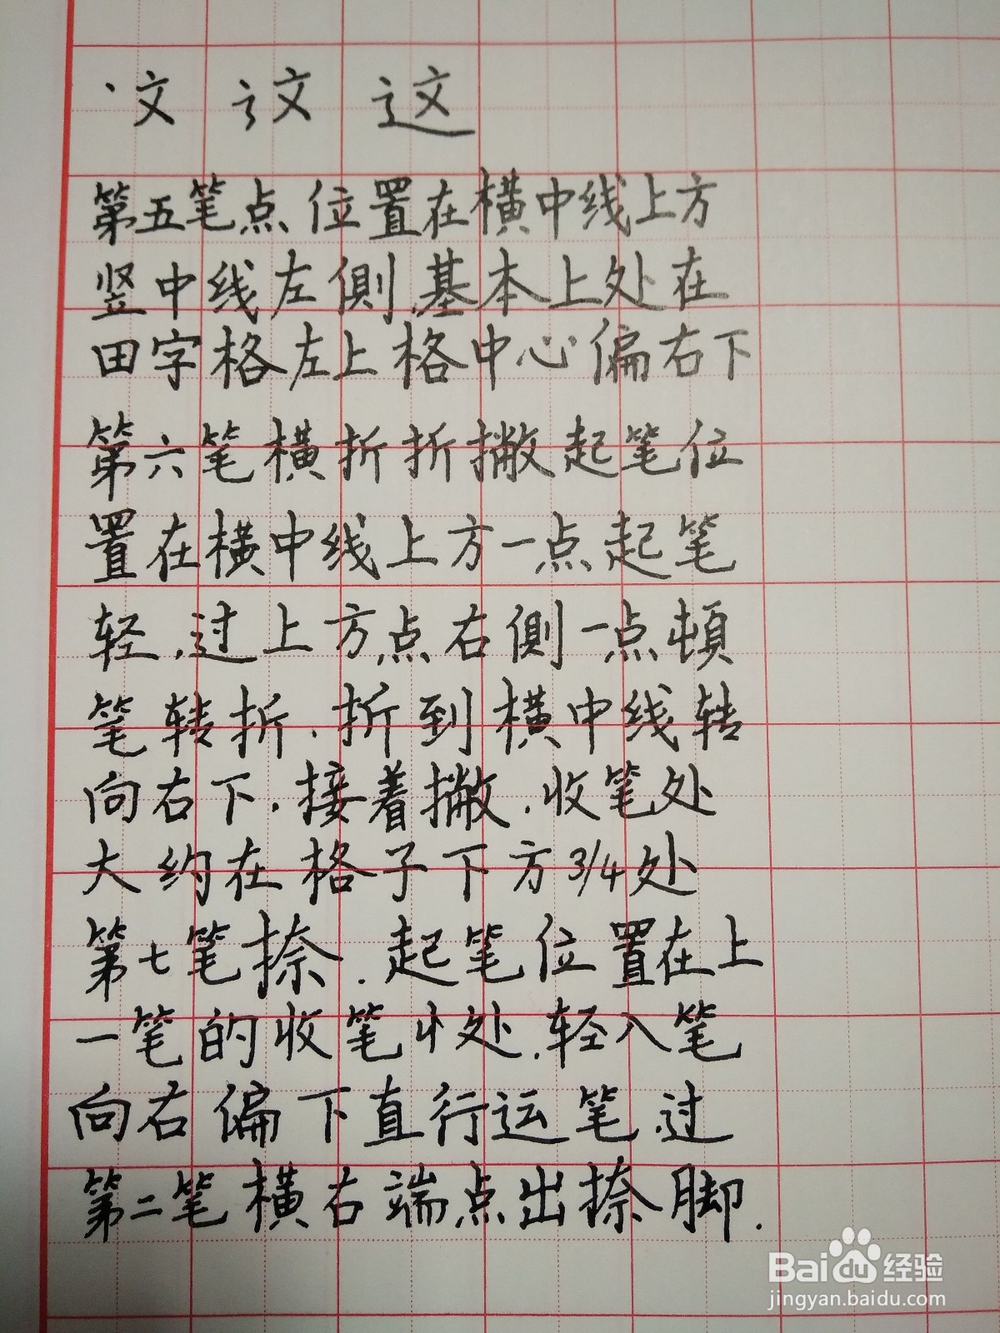 丶文 讠文 这
第五笔点位置在横中线上方
竖中线左侧,基本上处在
田字格左上格中心偏右下
第六笔横折折撇起笔位
置在横中线上方一点起笔
轻,过上方点右侧一点顿
笔转折,折到横中线转
向右下,接着撇,收笔处
大约在格子下方3/4处
第七笔捺.起笔位置在上
一笔的收笔处,轻入笔
向右偏下直行运笔,过
第二笔横右端点出捺脚.
Baidu经验
jingyan.baidu.com